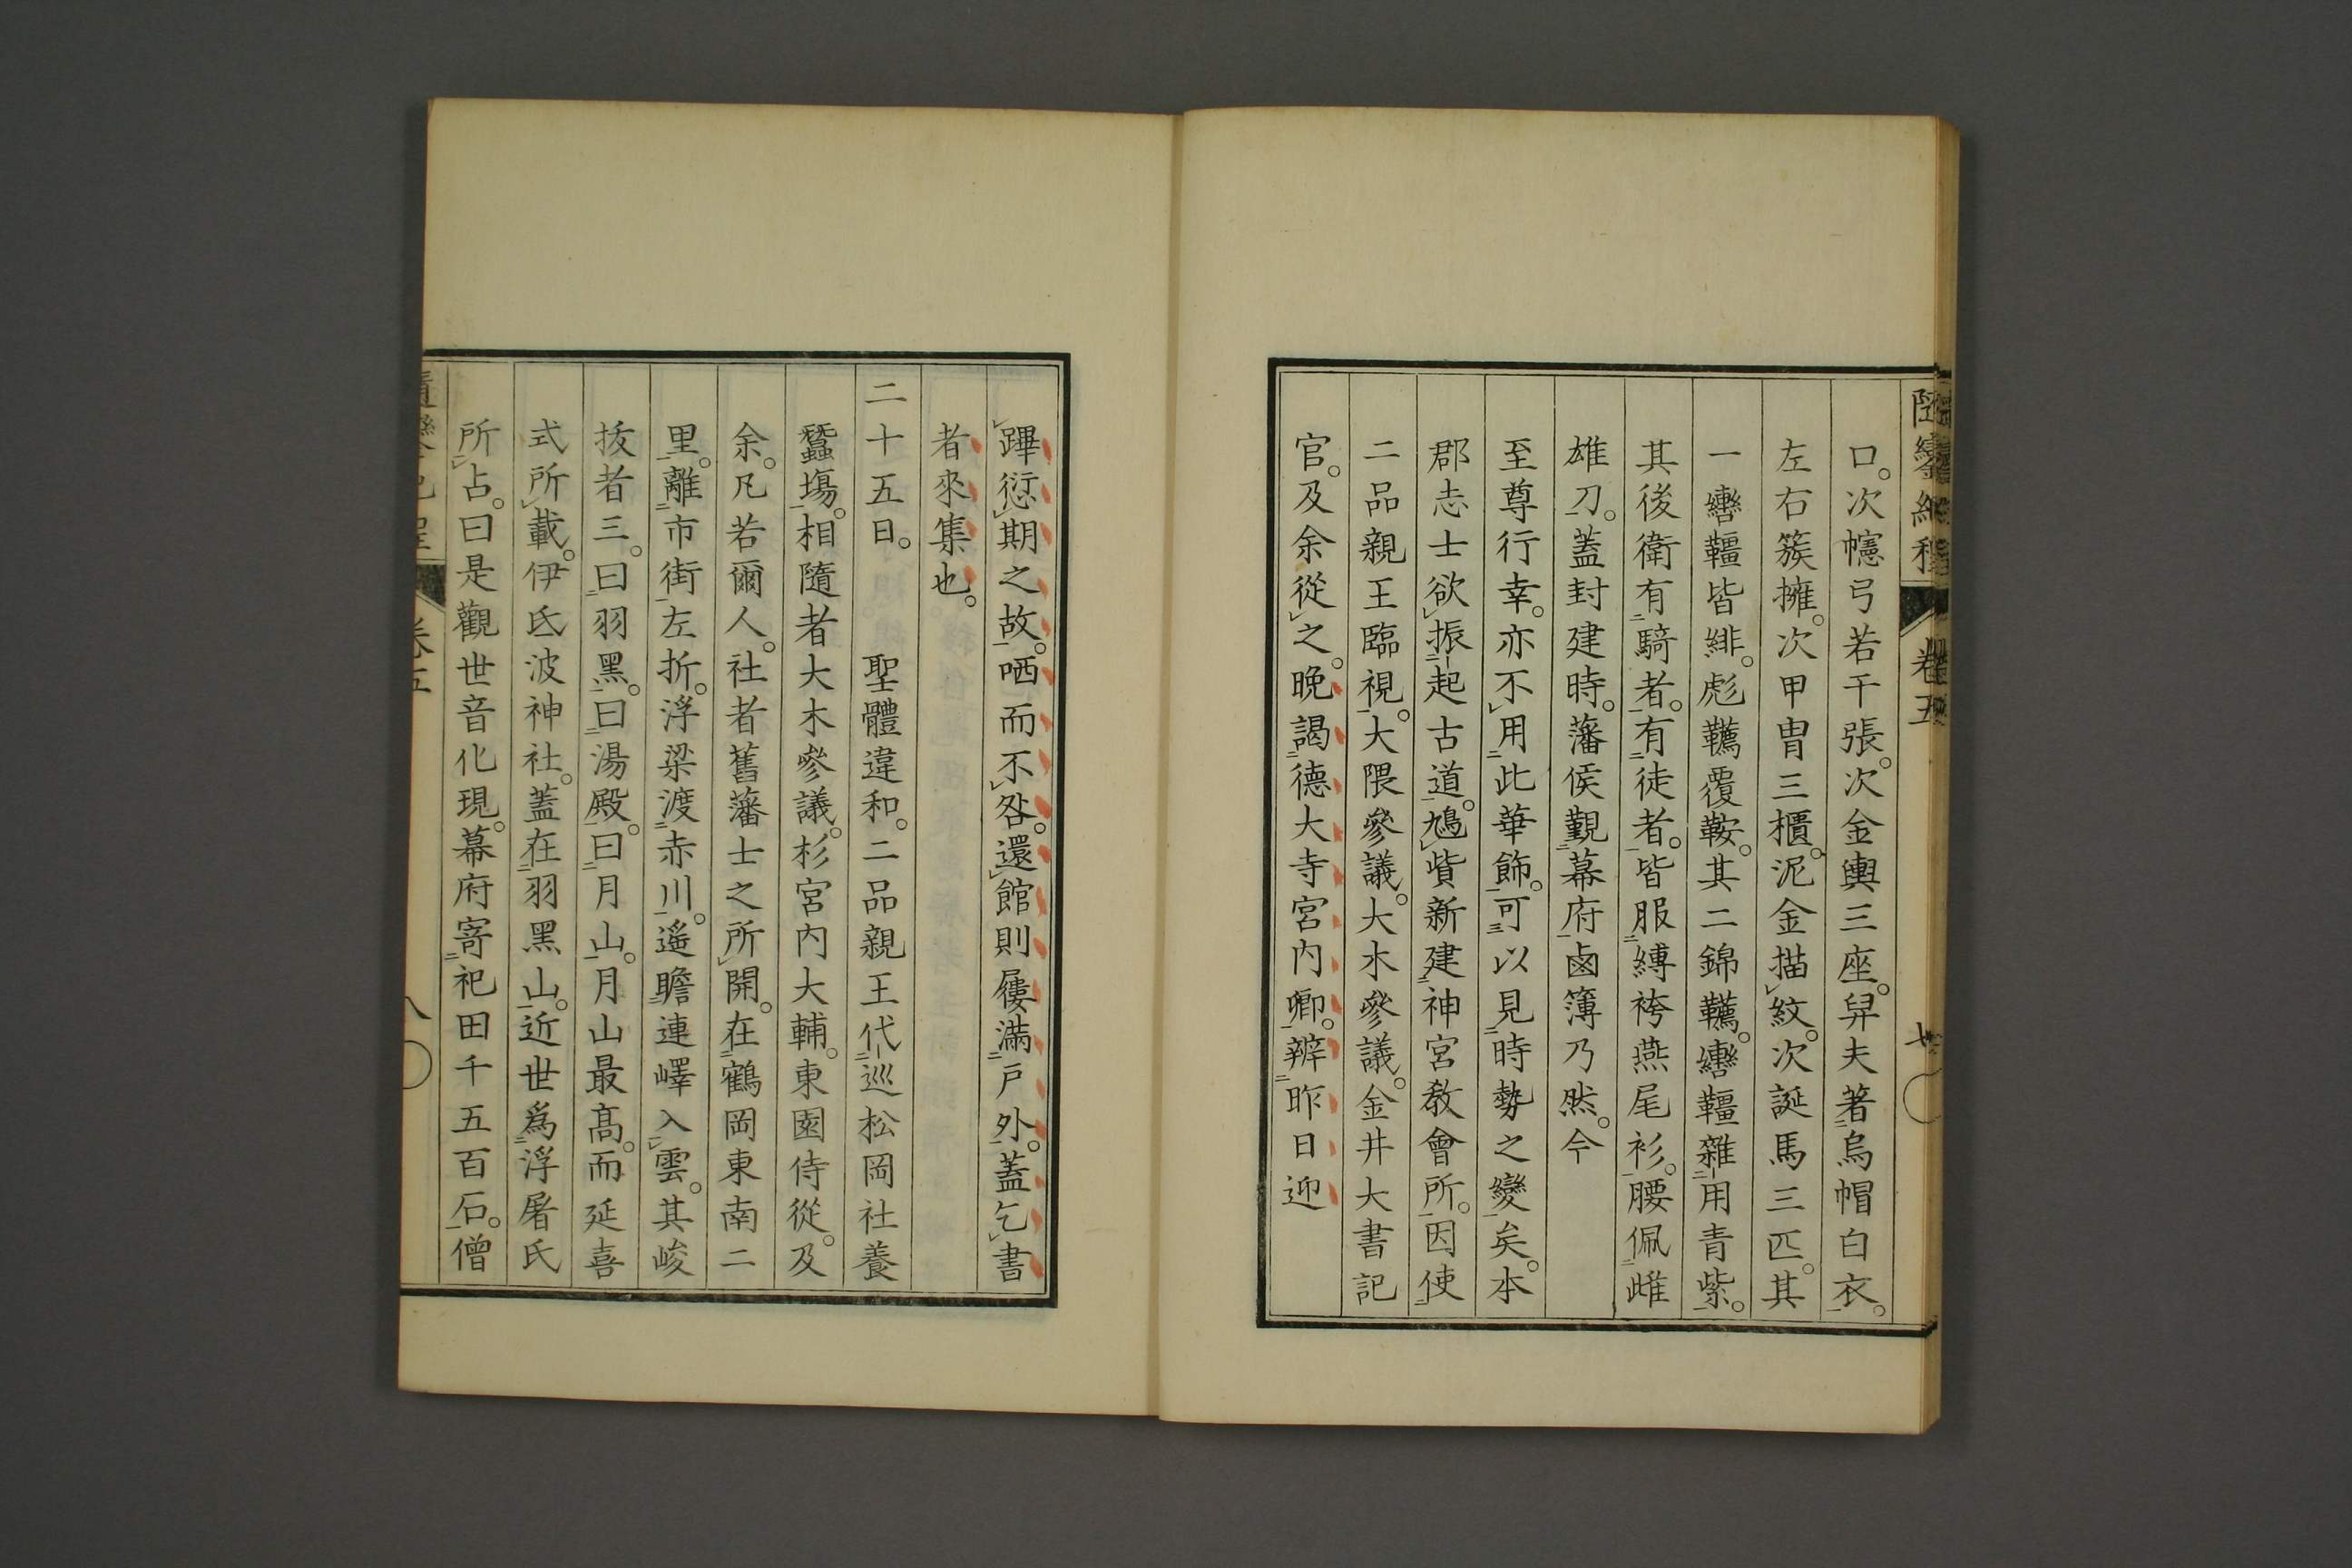 口。次幰弓若干張。次金輿三座。舁夫著烏帽白衣。
左右簇擁。次甲冑三櫃。泥金描紋。次誕馬三匹。其
一轡韁皆緋。彪韉覆鞍。其二錦韉。轡韁雜用青紫。
其後衛有騎者。有徒者。皆服縛袴燕尾衫。腰佩雌
雄刀。蓋封建時。藩侯覲幕府鹵簿乃然。今
至尊行幸。亦不用此華飾。可以見時勢之變矣。本
郡志士欲振起古道。鳩貲新建神宮教會所。因使
二品親王臨視。大隈參議。大木參議。金井大書記
官。及余從之。晚謁德大寺宮內卿。辨昨日迎
蹕愆期之故。哂而不咎。還館則屨滿戶外。蓋乞書
者來集也。
二十五日。 聖體違和。二品親王代巡松岡社養
蠶場。相隨者大木參議。杉宮內大輔。東園侍從。及
余。凡若爾人。社者舊藩士之所開。在鶴岡東南二
里。離市街左折。浮梁渡赤川。遙瞻連嶧入雲。其峻
拔者三。曰羽黑。曰湯殿。曰月山。月山最高。而延喜
式所載。伊氐波神社。蓋在羽黑山。近世爲浮屠氏
所占。曰是觀世音化現。幕府寄祀田千五百石。僧
卷五